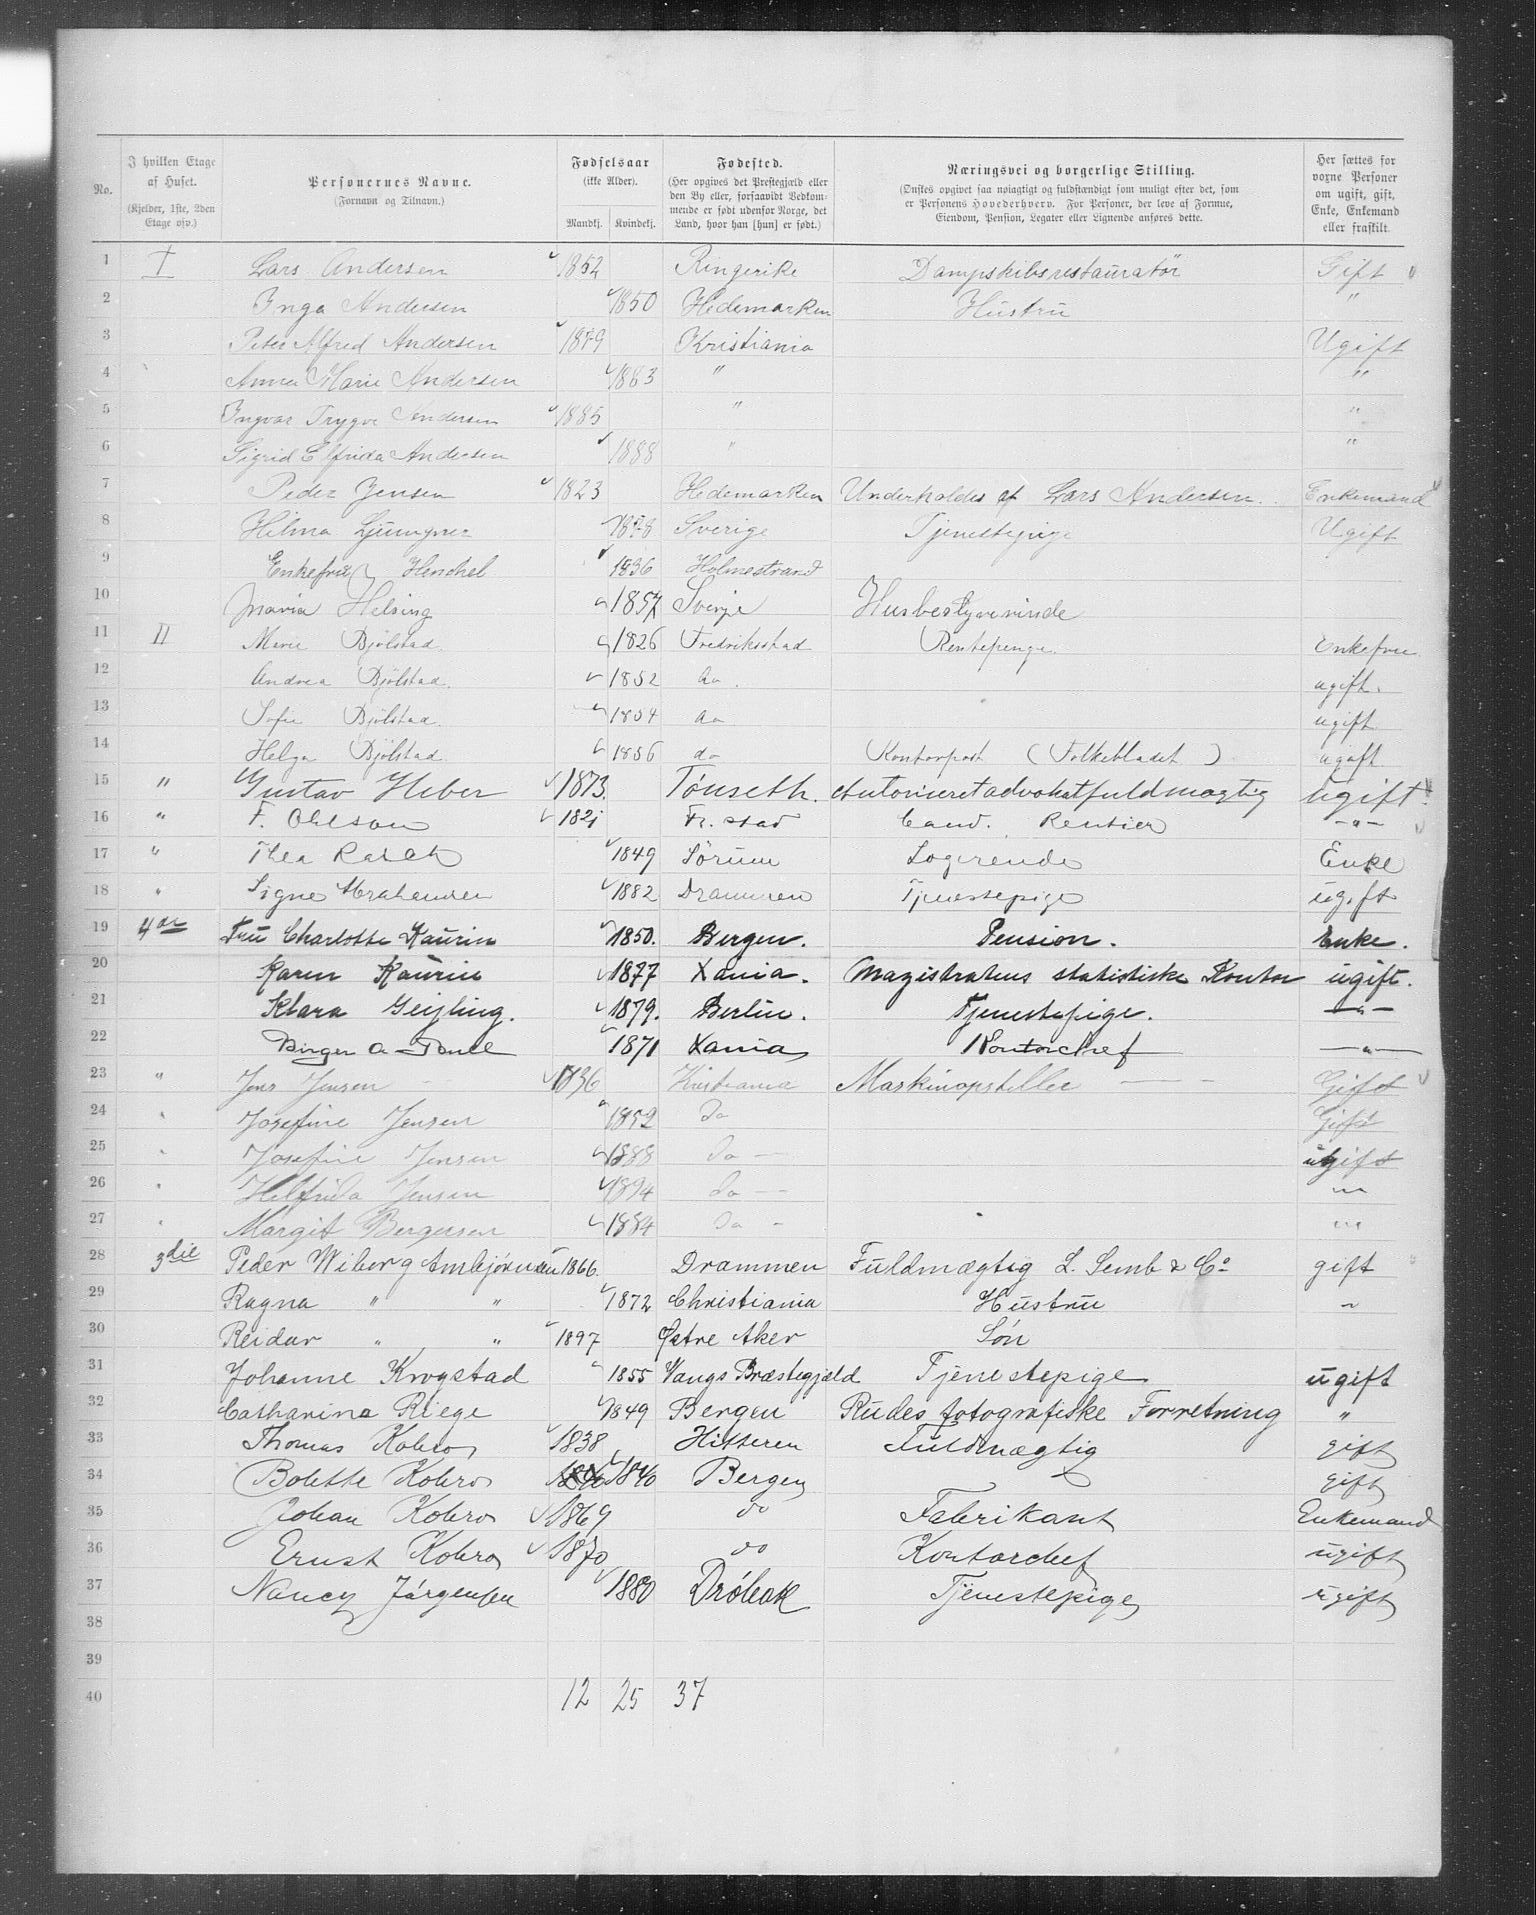 No. I hvilken Etage af Huset. (Kjelder, 1ste, 2den Etage osv.) Personernes Navne. (Fornavn og Tilnavn.) Fødselsaar (ikke Alder). Mandkj. Kvindekj. Fødested. (Her opgives det Prestegjæld eller den By eller, forsaavidt Vedkommende er født udenfor Norge, det Land, hvor han [hun] er født.) Næringsvei og borgerlige Stilling. (Ønskes opgivet saa nøiagtigt og fuldstændigt som muligt efter det, som er Personens Hovederhverv. For Personer, der leve af Formue, Eiendom, Pension, Legater eller Lignende anføres dette. Her sættes for voxne Personer om ugift, gift, Enke, Enkemand eller fraskilt.
1 I Lars Andersen 1852 Ringerike Dampskibsrestauratør Gift
2 Inga Andersen 1850 Hedemarken Hustru "
3 Peter Alfred Andersen 1879 Kristiania Ugift
4 Anna Marie Andersen 1883 " "
5 Ingvar Trygve Andersen 1885 " "
6 Sigrid Elfrida Andersen 1888 " "
7 Peder Jensen 1823 Hedemarken Underholdes af Lars Andersen. Enkemand
8 Hilma Ljungner 1878 Sverige Tjenestepige Ugift
9 Enkefru Henchel 1836 Holmestrand
10 Maria Helsing 1857 Sverje Husbestyrerinde
11 II Marie Bjølstad 1826 Fredriksstad Rentepenge. Enkefru
12 Andrea Bjølstad. 1852 do. ugift.
13 Sofie Bjølstad. 1854 do ugift
14 Helga Bjølstad. 1856 do Kontorpost (Folkebladet) ugift
15 " Gustav Heber 1873. Tønseth. Autoriseret advokatfuldmægtig ugift.
16 " F. Ohlson 1821 Fr. stad Cand. Rentier -"-
17 " Thea Rasch 1849 Sørum Logerende Enke
18 " Signe Abrahamsen 1882 Drammen Tjenestepige ugift
19 4de Fru Charlotte Kaurin 1850. Bergen. Pension. Enke.
20 Karen Kaurin 1877 Xania. Magistratens statistiske Kontor ugift.
21 Klara Geijling. 1879. Berlin. Tjenestepige. -"-
22 Birger 1871 Xania Kontorchef -"-
23 " Jens Jensen 1836 Kristiania Maskinopstiller Gift
24 " Josefine Jensen 1852 Do Gift
25 " Josefine Jensen 1888 Do ugift
26 " Helfrida Jensen 1894 Do "
27 " Margit Bergersen 1884 Do "
28 3die Peder Wiborg Ambjørnsen 1866. Drammen Fuldmægtig L. Semb & Co gift
29 Ragna " " 1872 Christiania Hustru "
30 Reidar " " 1897 Østre Aker Søn
31 Johanne Krogstad 1855 Vangs Præstegjæld Tjenestepige ugift
32 Catharina Riege 1849 Bergen Rudes fotografiske Forretning "
33 Thomas Kobro 1838 Hitteren Fuldmægtig gift
34 Bolette Kobro 1840 Bergen gift
35 Johan Kobro 1869 do Fabrikant Enkemand
36 Ernst Kobro 1870 do Kontorchef ugift
37 Nancy Jørgensen 1880 Drøbak Tjenestepige ugift
38
39
40 12 25 37